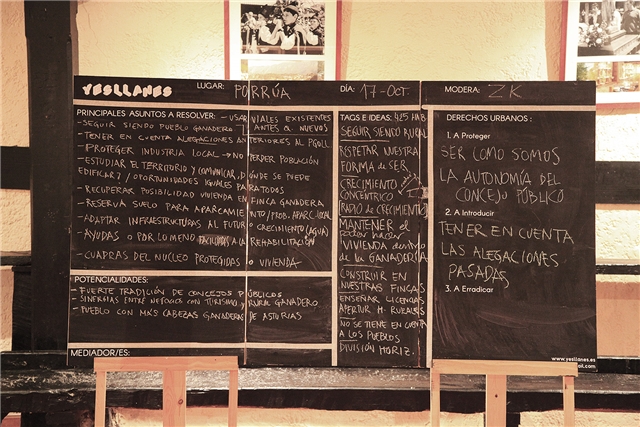 YESLLANES
LUGAR: PORRÚA
DÍA: 17-OCT.
MODERA: ZK
PRINCIPALES ASUNTOS A RESOLVER: - USAR VIALES EXISTENTES
ANTES Q. NUEVOS
- SEGUIR SIENDO PUEBLO GANADERO
- TENER EN CUENTA ALEGACIONES ANTERIORES AL PGOU.
- PROTEGER INDUSTRIA LOCAL → NO PERDER POBLACIÓN
- ESTUDIAR EL TERRITORIO Y COMUNICAR, DÓNDE SE PUEDE
EDIFICAR? / OPORTUNIDADES IGUALES PARA TODOS
- RECUPERAR POSIBILIDAD VIVIENDA EN FINCA GANADERA
- RESERVA SUELO PARA APARCAMIENTO / PROB. APARC. LOCAL
- ADAPTAR INFRAESTRUCTURAS AL FUTURO CRECIMIENTO (AGUA)
- AYUDAS O POR LO MENO FACILIDADES A LA REHABILITACIÓN
- CUADRAS DEL NÚCLEO PROTEGIDAS O VIVIENDA
POTENCIALIDADES:
- FUERTE TRADICIÓN DE CONCEJOS PÚBLICOS
- SINERGIAS ENTRE NEGOCIOS CON TURISMO Y RURAL GANADERO
- PUEBLO CON MÁS CABEZAS GANADERAS DE ASTURIAS
MEDIADOR/ES:
TAGS E IDEAS: 425 HAB
SEGUIR SIENDO RURAL
RESPETAR NUESTRA
FORMA DE SER
CRECIMIENTO
CONCÉNTRICO
RADIO DE CRECIMIENTO
MANTENER EL
PODER HACER
VIVIENDA dentro
de la GANADERÍA
CONSTRUIR EN
NUESTRAS FINCAS
ENSEÑAR LICENCIAS
APERTUR H. RURALES
NO SE TIENE EN CUENTA
A LOS PUEBLOS
DIVISIÓN HORIZ.
DERECHOS URBANOS:
1. A Proteger
SER COMO SOMOS
LA AUTONOMÍA DEL
CONCEJO PÚBLICO
2. A Introducir
TENER EN CUENTA
LAS ALEGACIONES
PASADAS
3. A Erradicar
www.yesllanes.es